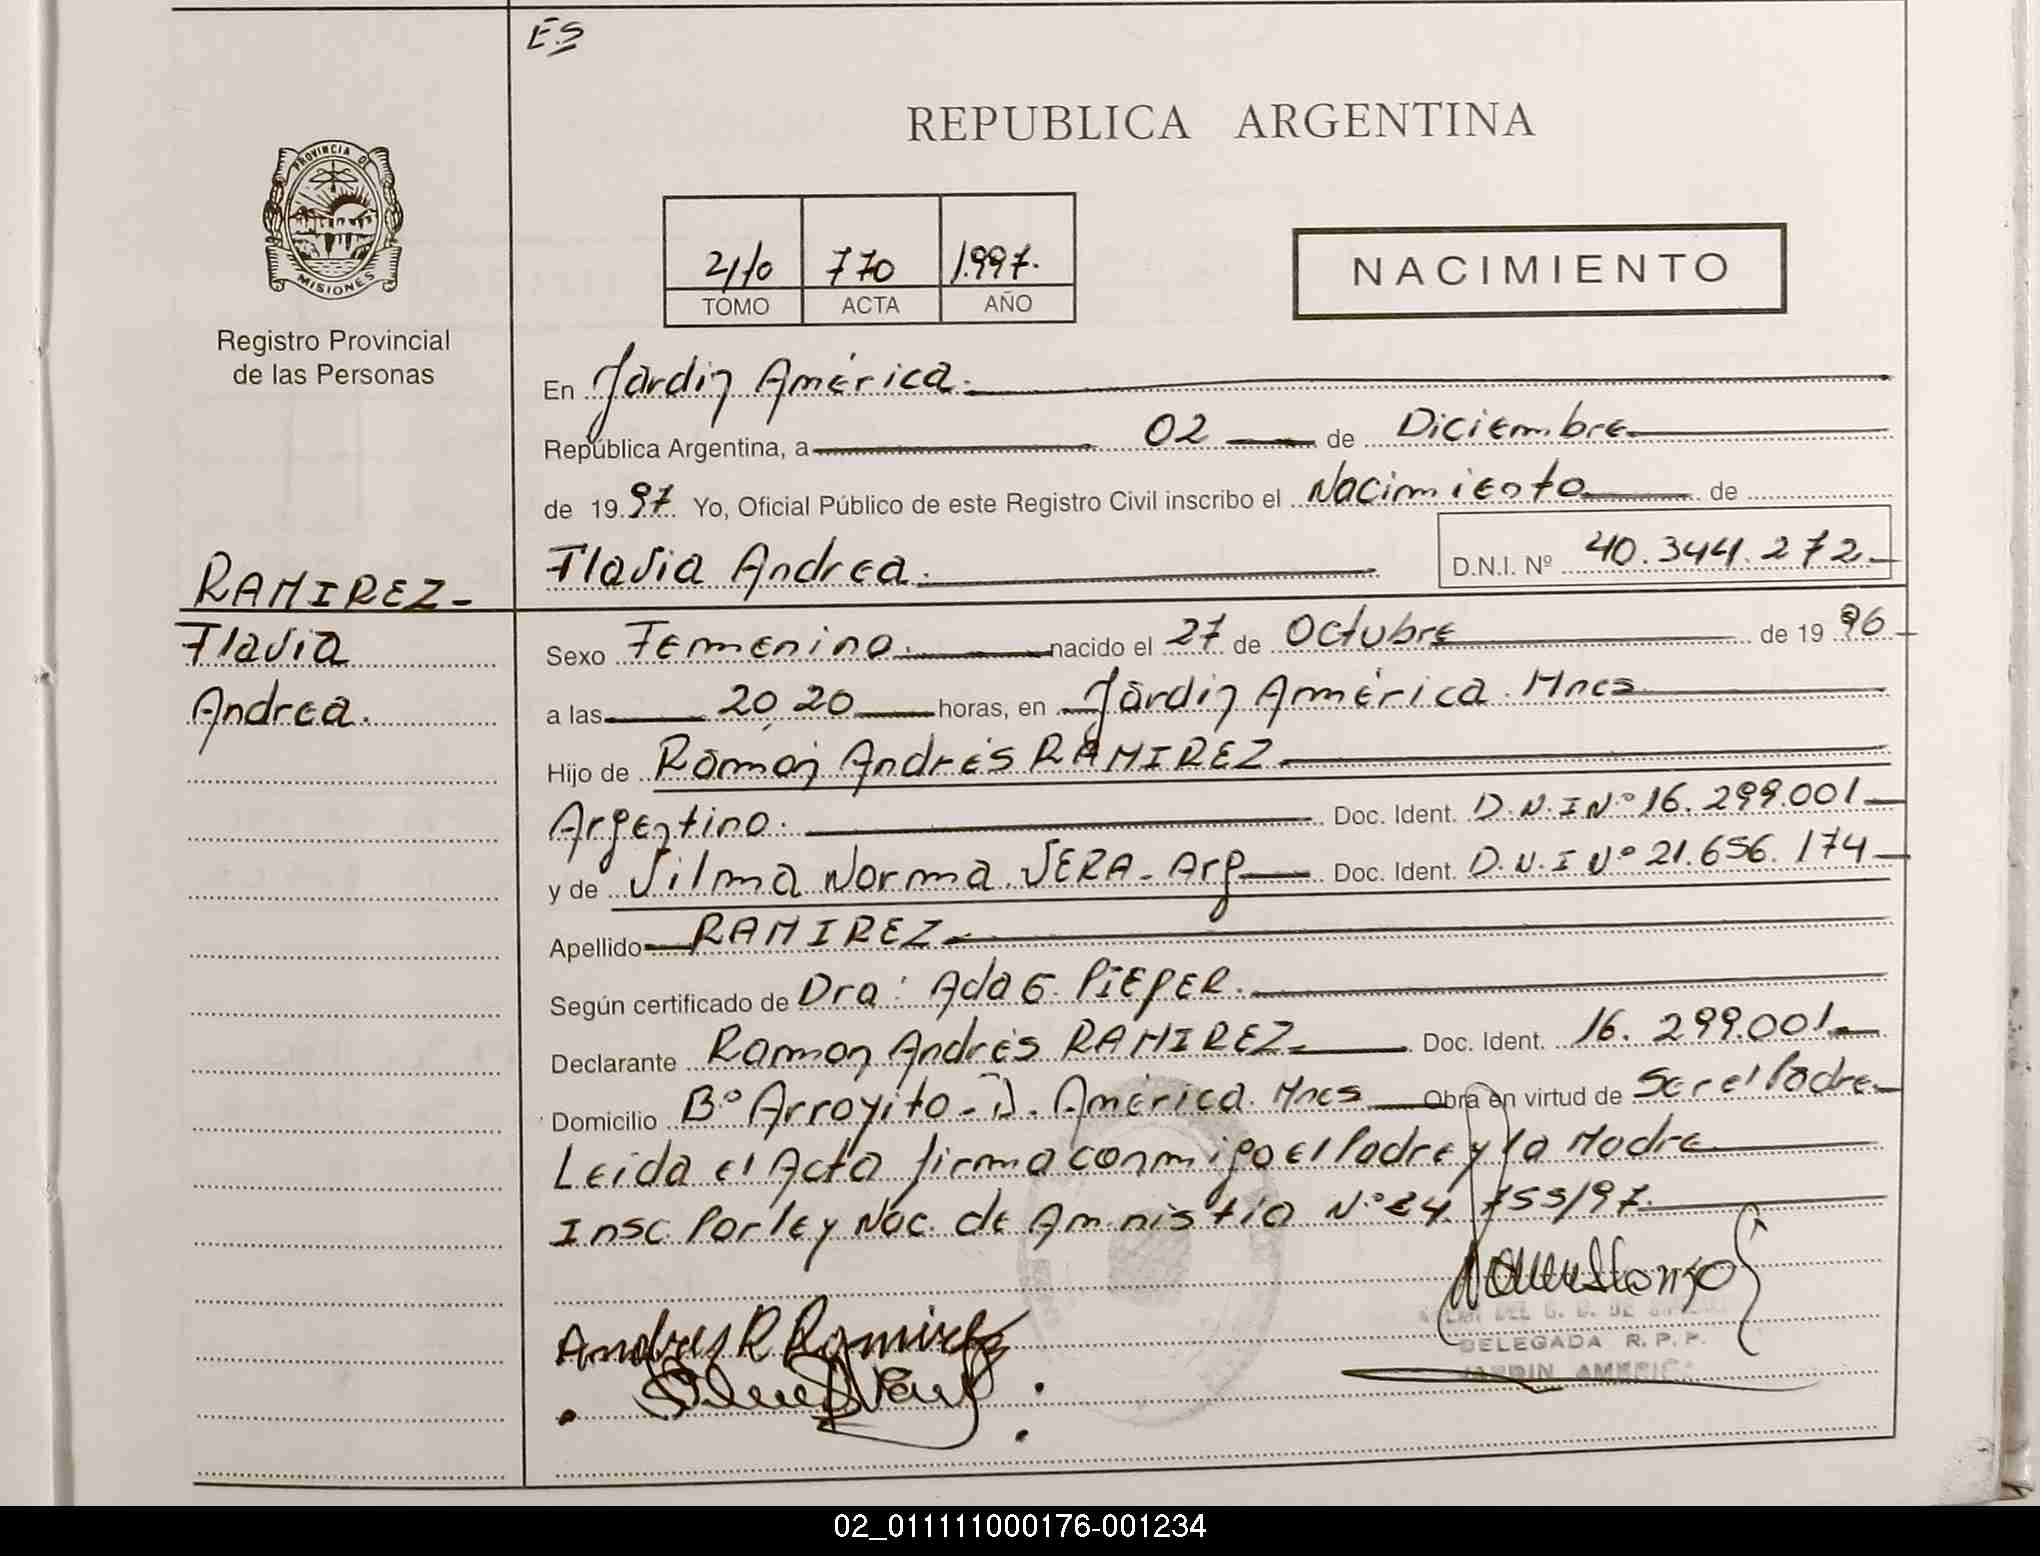 ES
REPUBLICA ARGENTINA
PROVINCIA DE
MISIONES
Registro Provincial
de las Personas
770 1.997.
TOMO ACTA AÑO
NACIMIENTO
En Jardin América.
República Argentina, a 02 de Diciembre
de 19 97 Yo, Oficial Público de este Registro Civil inscribo el Nacimiento de
Flavia Andrea. D.N.I. Nº 40.344.272
RAMIREZ
Flavia
Andrea.
Sexo Femenino. nacido el 27 de Octubre de 19 96
a las 20,20 horas, en Jardin América. Mnes
Hijo de Ramón Andrés RAMIREZ
Argentino. Doc. Ident. D.N.I Nº 16.299.001
y de Vilma Norma VERA - Arg Doc. Ident. D.N.I Nº 21.656.174
Apellido RAMIREZ
Según certificado de Dra: Ada G. PIEPER.
Declarante Ramon Andrés RAMIREZ Doc. Ident. 16.299.001
Domicilio Bº Arroyito - J. América. Mnes Obra en virtud de Ser el Padre
Leida el Acta firma conmigo el Padre y la Madre
Insc. Por ley Nac. de Amnistia Nº 24.755/97.
Andres R Ramirez
DELEGADA R. P. P.
JARDIN AMERICA
02_011111000176-001234